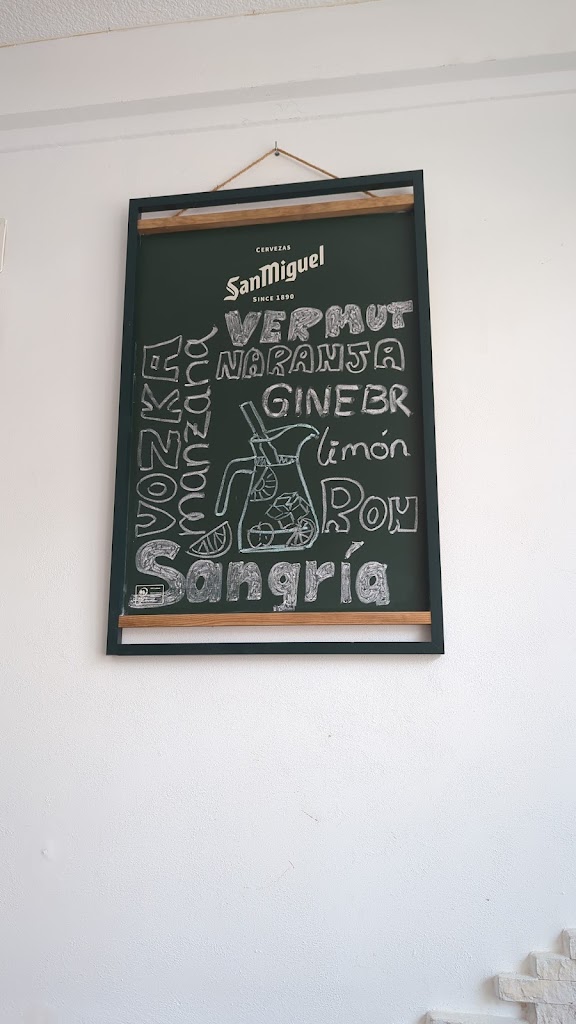 CERVEZAS
SanMiguel
SINCE 1890
VERMUT
NARANJA
GINEBR
limón
RON
VOZKA
manzana
Sangría